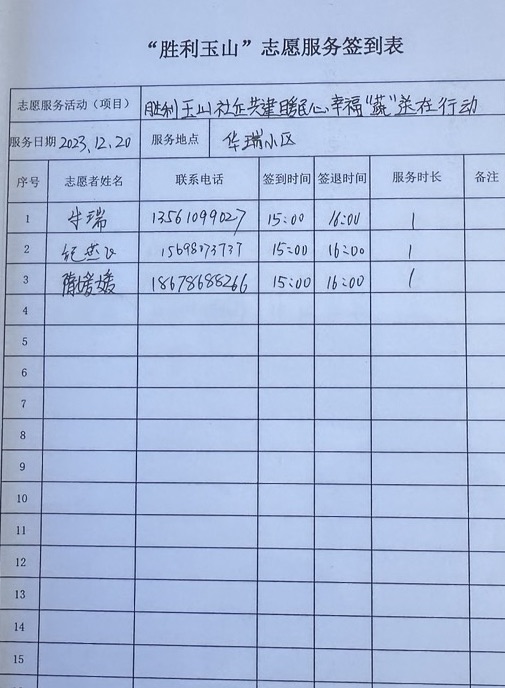 “胜利玉山”志愿服务签到表
志愿服务活动（项目） 胜利玉山社企共建暖民心 幸福“蔬”送在行动
服务日期 2023.12.20 服务地点 华瑞小区
序号 志愿者姓名 联系电话 签到时间 签退时间 服务时长 备注
1 牛瑞 13561099027 15:00 16:00 1
2 纪燕飞 15698073737 15:00 16:00 1
3 隋媛媛 18678688266 15:00 16:00 1
4
5
6
7
8
9
10
11
12
13
14
15